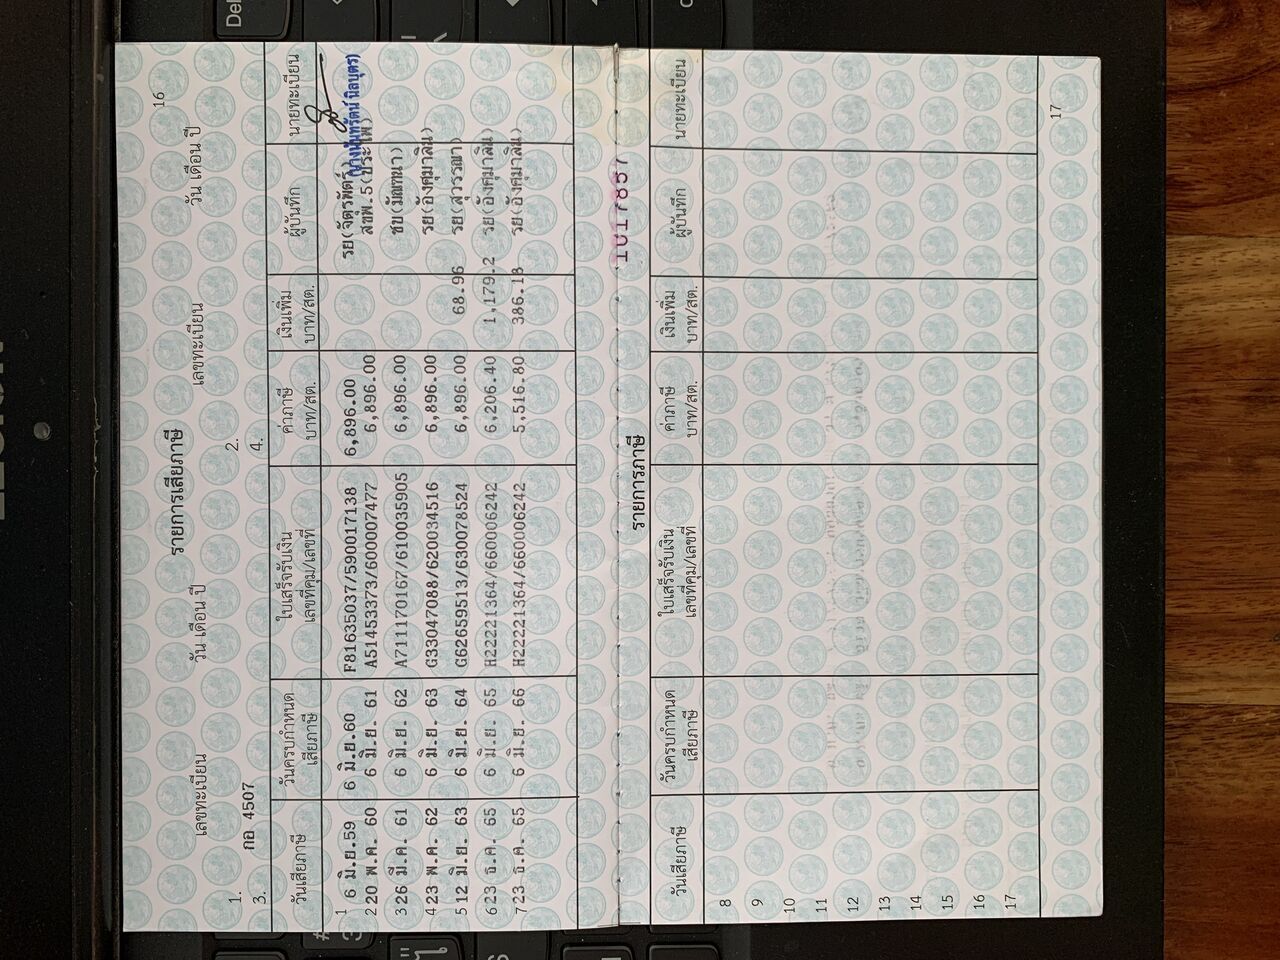 16
รายการเสียภาษี
เลขทะเบียน วัน เดือน ปี เลขทะเบียน วัน เดือน ปี
1. 2.
3. กก 4507 4.
วันเสียภาษี วันครบกำหนดเสียภาษี ใบเสร็จรับเงิน เลขที่คุม/เลขที่ ค่าภาษี บาท/สต. เงินเพิ่ม บาท/สต. ผู้บันทึก นายทะเบียน
1 6 มิ.ย.59 6 มิ.ย.60 F81635037/590017138 6,896.00 รย(จัตรพัตร์)
(นางนันทรัตน์ นิลบุตร)
2 20 พ.ค. 60 6 มิ.ย. 61 A51453373/600007477 6,896.00 สขพ.5(ประไพ)
3 26 มี.ค. 61 6 มิ.ย. 62 A711170167/610035905 6,896.00 ชบ(มัณฑนา)
4 23 พ.ค. 62 6 มิ.ย. 63 G33047088/620034516 6,896.00 รย(อังศุมาลิน)
5 12 มิ.ย. 63 6 มิ.ย. 64 G62659513/630078524 6,896.00 68.96 รย(สุวรรณา)
6 23 ธ.ค. 65 6 มิ.ย. 65 H22221364/660006242 6,206.40 1,179.2 รย(อังศุมาลิน)
7 23 ธ.ค. 65 6 มิ.ย. 66 H22221364/660006242 5,516.80 386.18 รย(อังศุมาลิน)
1017857
รายการภาษี
วันเสียภาษี วันครบกำหนดเสียภาษี ใบเสร็จรับเงิน เลขที่คุม/เลขที่ ค่าภาษี บาท/สต. เงินเพิ่ม บาท/สต. ผู้บันทึก นายทะเบียน
8
9
10
11
12
13
14
15
16
17
17
Del